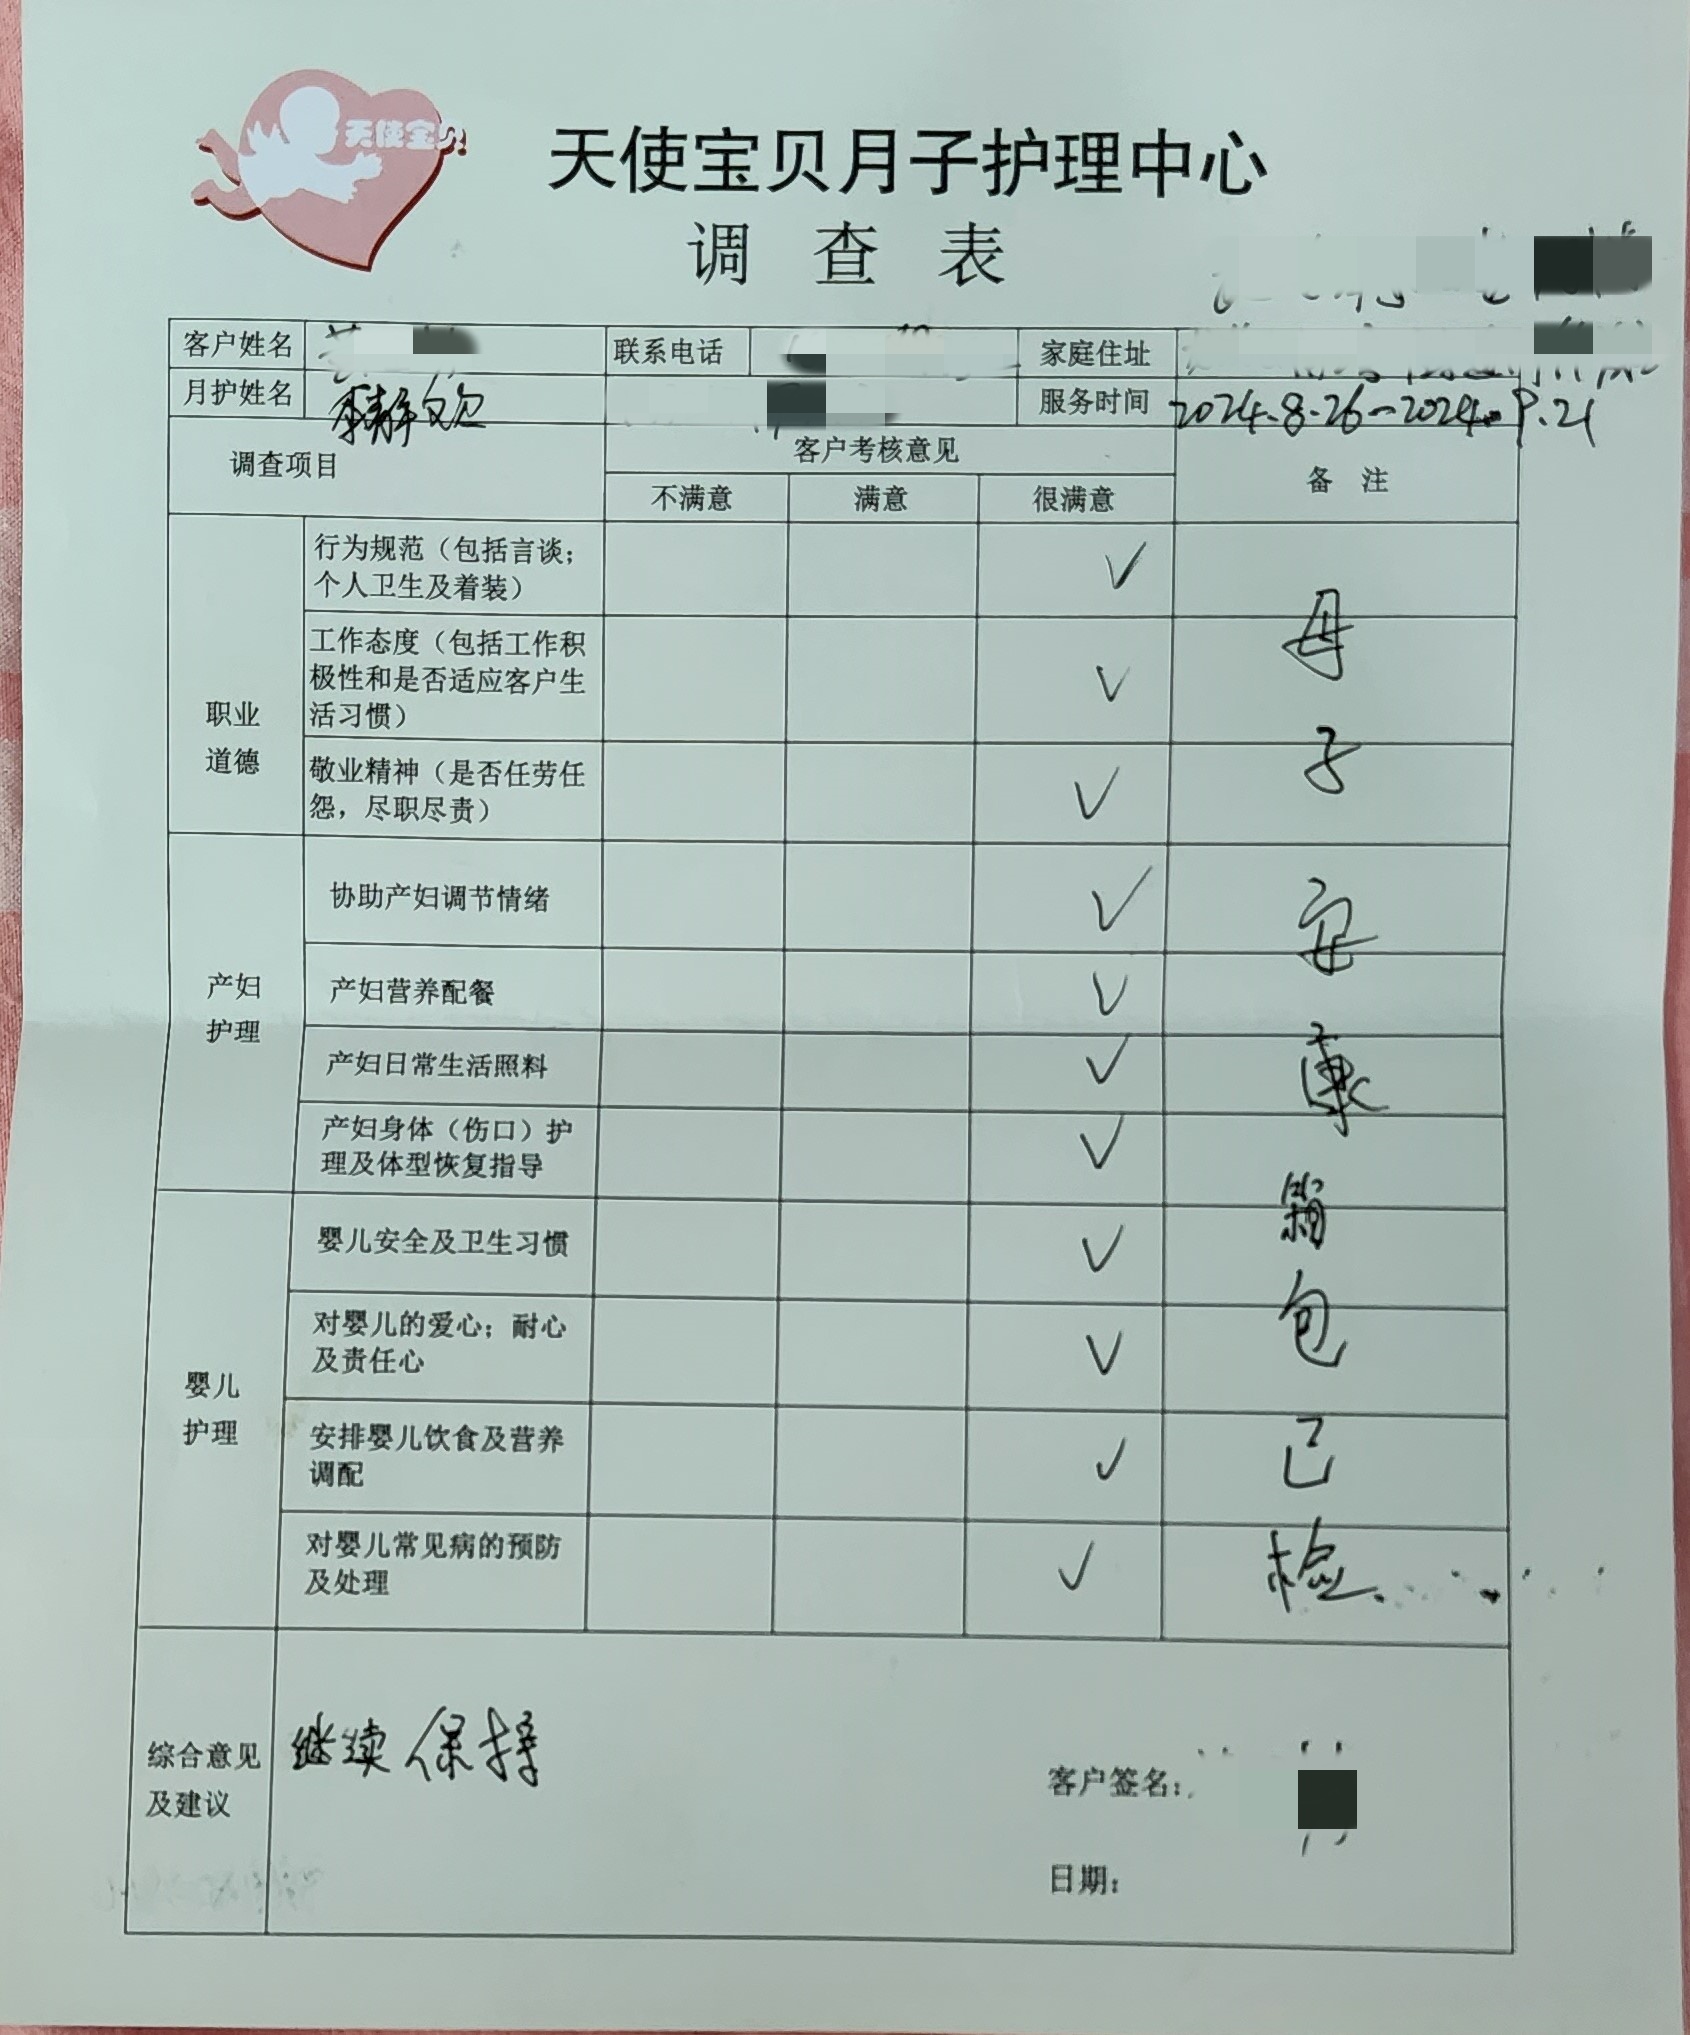 天使宝贝
天使宝贝月子护理中心
调 查 表
客户姓名 联系电话 家庭住址
月护姓名 李静 服务时间 2024.8.26-2024.9.21
调查项目 客户考核意见 备 注
不满意 满意 很满意
职业
道德
行为规范（包括言谈；
个人卫生及着装） ✓
工作态度（包括工作积
极性和是否适应客户生
活习惯） ✓
敬业精神（是否任劳任
怨，尽职尽责） ✓
产妇
护理
协助产妇调节情绪 ✓
产妇营养配餐 ✓
产妇日常生活照料 ✓
产妇身体（伤口）护
理及体型恢复指导 ✓
婴儿
护理
婴儿安全及卫生习惯 ✓
对婴儿的爱心；耐心
及责任心 ✓
安排婴儿饮食及营养
调配 ✓
对婴儿常见病的预防
及处理 ✓
母子安康箱包已检.
综合意见
及建议
继续保持
客户签名：
日期：